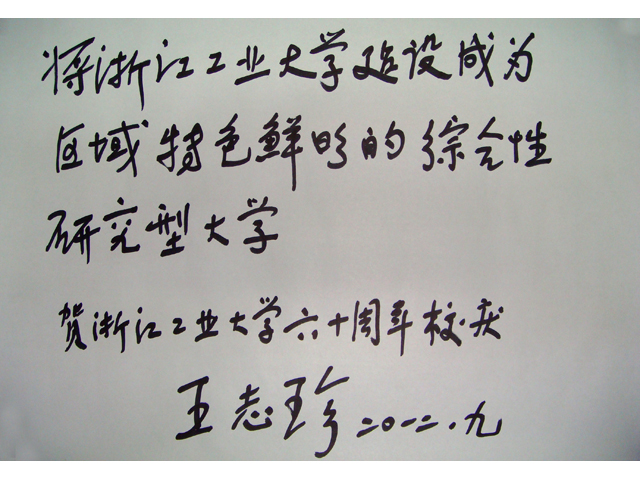 将浙江工业大学建设成为
区域特色鲜明的综合性
研究型大学
贺浙江工业大学六十周年校庆
王志珍 二〇一二.九